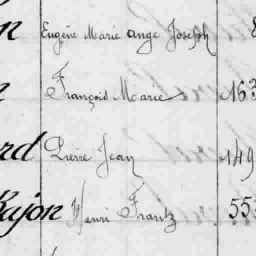 Eugène Marie ange Joseph
François Marie 163
rd Pierre Jean 149
Bajon Henri Frantz 553